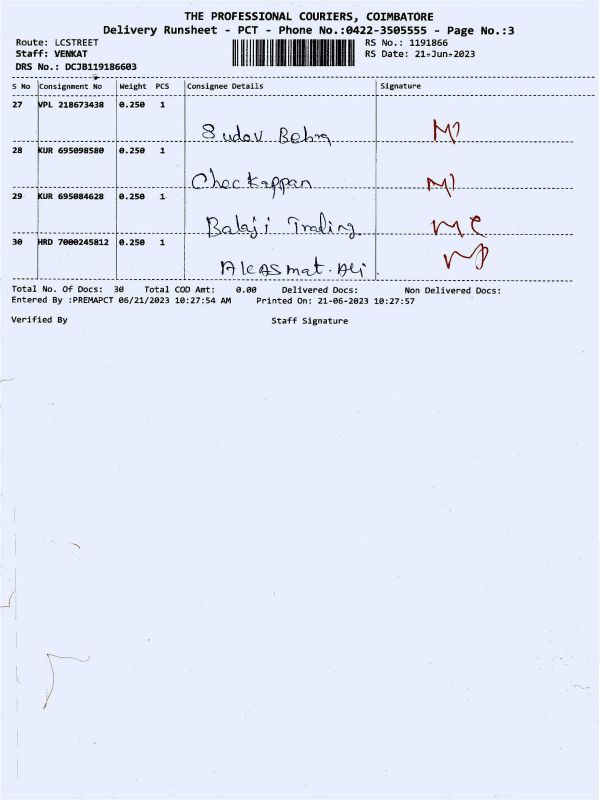 THE PROFESSIONAL COURIERS, COIMBATORE
Delivery Runsheet - PCT - Phone No.:0422-3505555 - Page No.:3
Route: LCSTREET RS No.: 1191866
Staff: VENKAT RS Date: 21-Jun-2023
DRS No.: DCJB119186603
S No Consignment No Weight PCS Consignee Details Signature
27 VPL 218673438 0.250 1
Sudov Behra
28 KUR 695098580 0.250 1
Chockappan
29 KUR 695084628 0.250 1
Balaji Trading
30 HRD 7000245812 0.250 1
Ali
Total No. Of Docs: 30 Total COD Amt: 0.00 Delivered Docs: Non Delivered Docs:
Entered By :PREMAPCT 06/21/2023 10:27:54 AM Printed On: 21-06-2023 10:27:57
Verified By Staff Signature